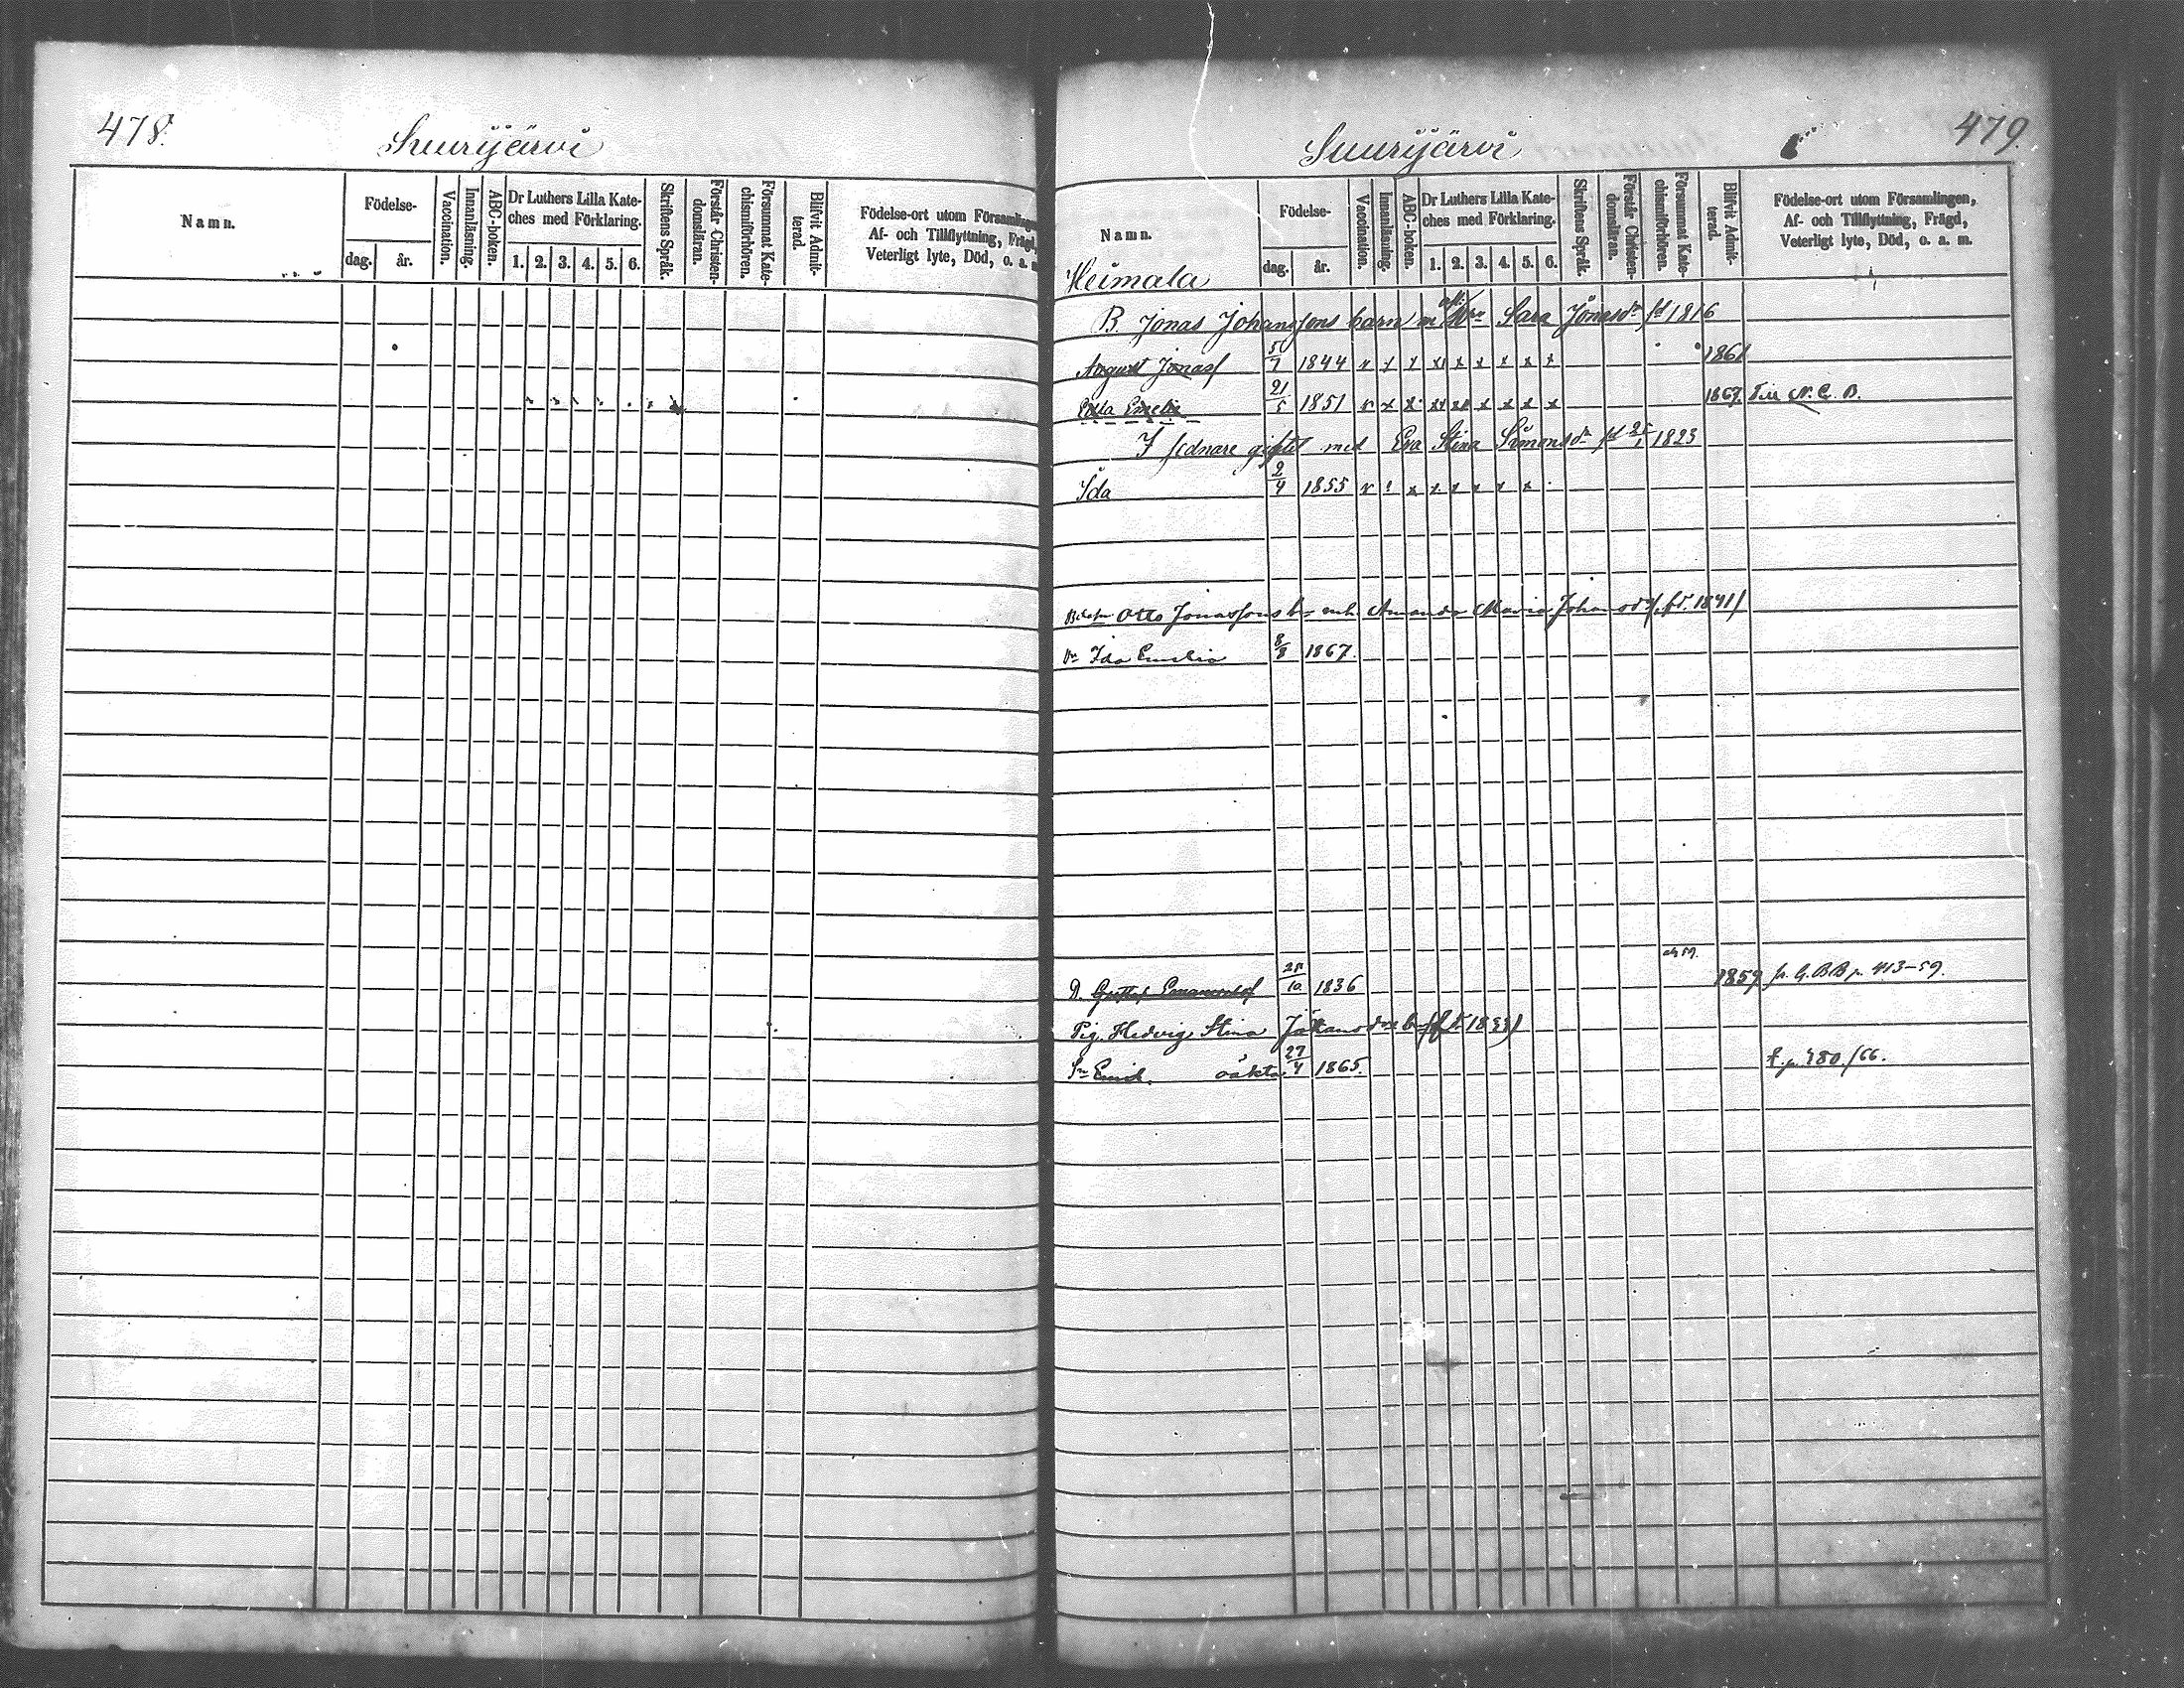 478.
Suurijärvi
Namn.
Födelse-
dag.
år.
Vaccination.
Innanläsning.
ABC-boken.
Dr Luthers Lilla Kate-
ches med Förklaring.
1. 2. 3. 4. 5. 6.
Skriftens Språk.
Förstår Christen-
domsläran.
Försummat Kate-
chismiförhören.
Blifvit Admit-
terad.
Födelse-ort utom Församlingen,
Af- och Tillflyttning, Frägd,
Veterligt lyte, Död, o. a. m.
479.
Suurijärvi
Namn.
Födelse-
dag.
år.
Vaccination.
Innanläsning.
ABC-boken.
Dr Luthers Lilla Kate-
ches med Förklaring.
1. 2. 3. 4. 5. 6.
Skriftens Språk.
Förstår Christen-
domsläran.
Försummat Kate-
chismiförhören.
Blifvit Admit-
terad.
Födelse-ort utom Församlingen,
Af- och Tillflyttning, Frägd,
Veterligt lyte, Död, o. a. m.
Heimala
B. Jonas Johanssons barn m Sara Jonasdr fd 1816
August Jonasf 5/7 1844 v x x x x x x x x 1861
Edla Emelie 21/5 1851 v x x x x x x x x 1867 Till N. C. B.
I sednare giftet med Eva Stina Simonsdr fd 25/1 1823
Ida 2/4 1855 v x x x x x x
Otto Jonassons b. m.h. Amanda Maria Johansdr (fd. 1841)
Dr Ida Emelia 8/8 1867.
D. Gustaf Emanuelsf 1836 1859 fr. G. BB p. 413-59.
Pig. Hedvig Stina
Sn Emil. oäkta 27/4 1865. f. p. 480./66.